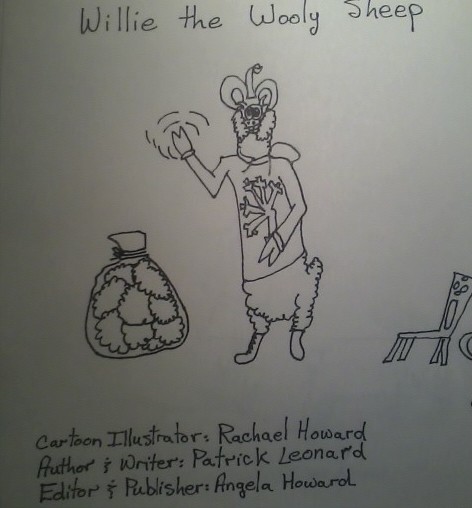 Willie the Wooly Sheep
Cartoon Illustrator: Rachael Howard
Author & Writer: Patrick Leonard
Editor & Publisher: Angela Howard